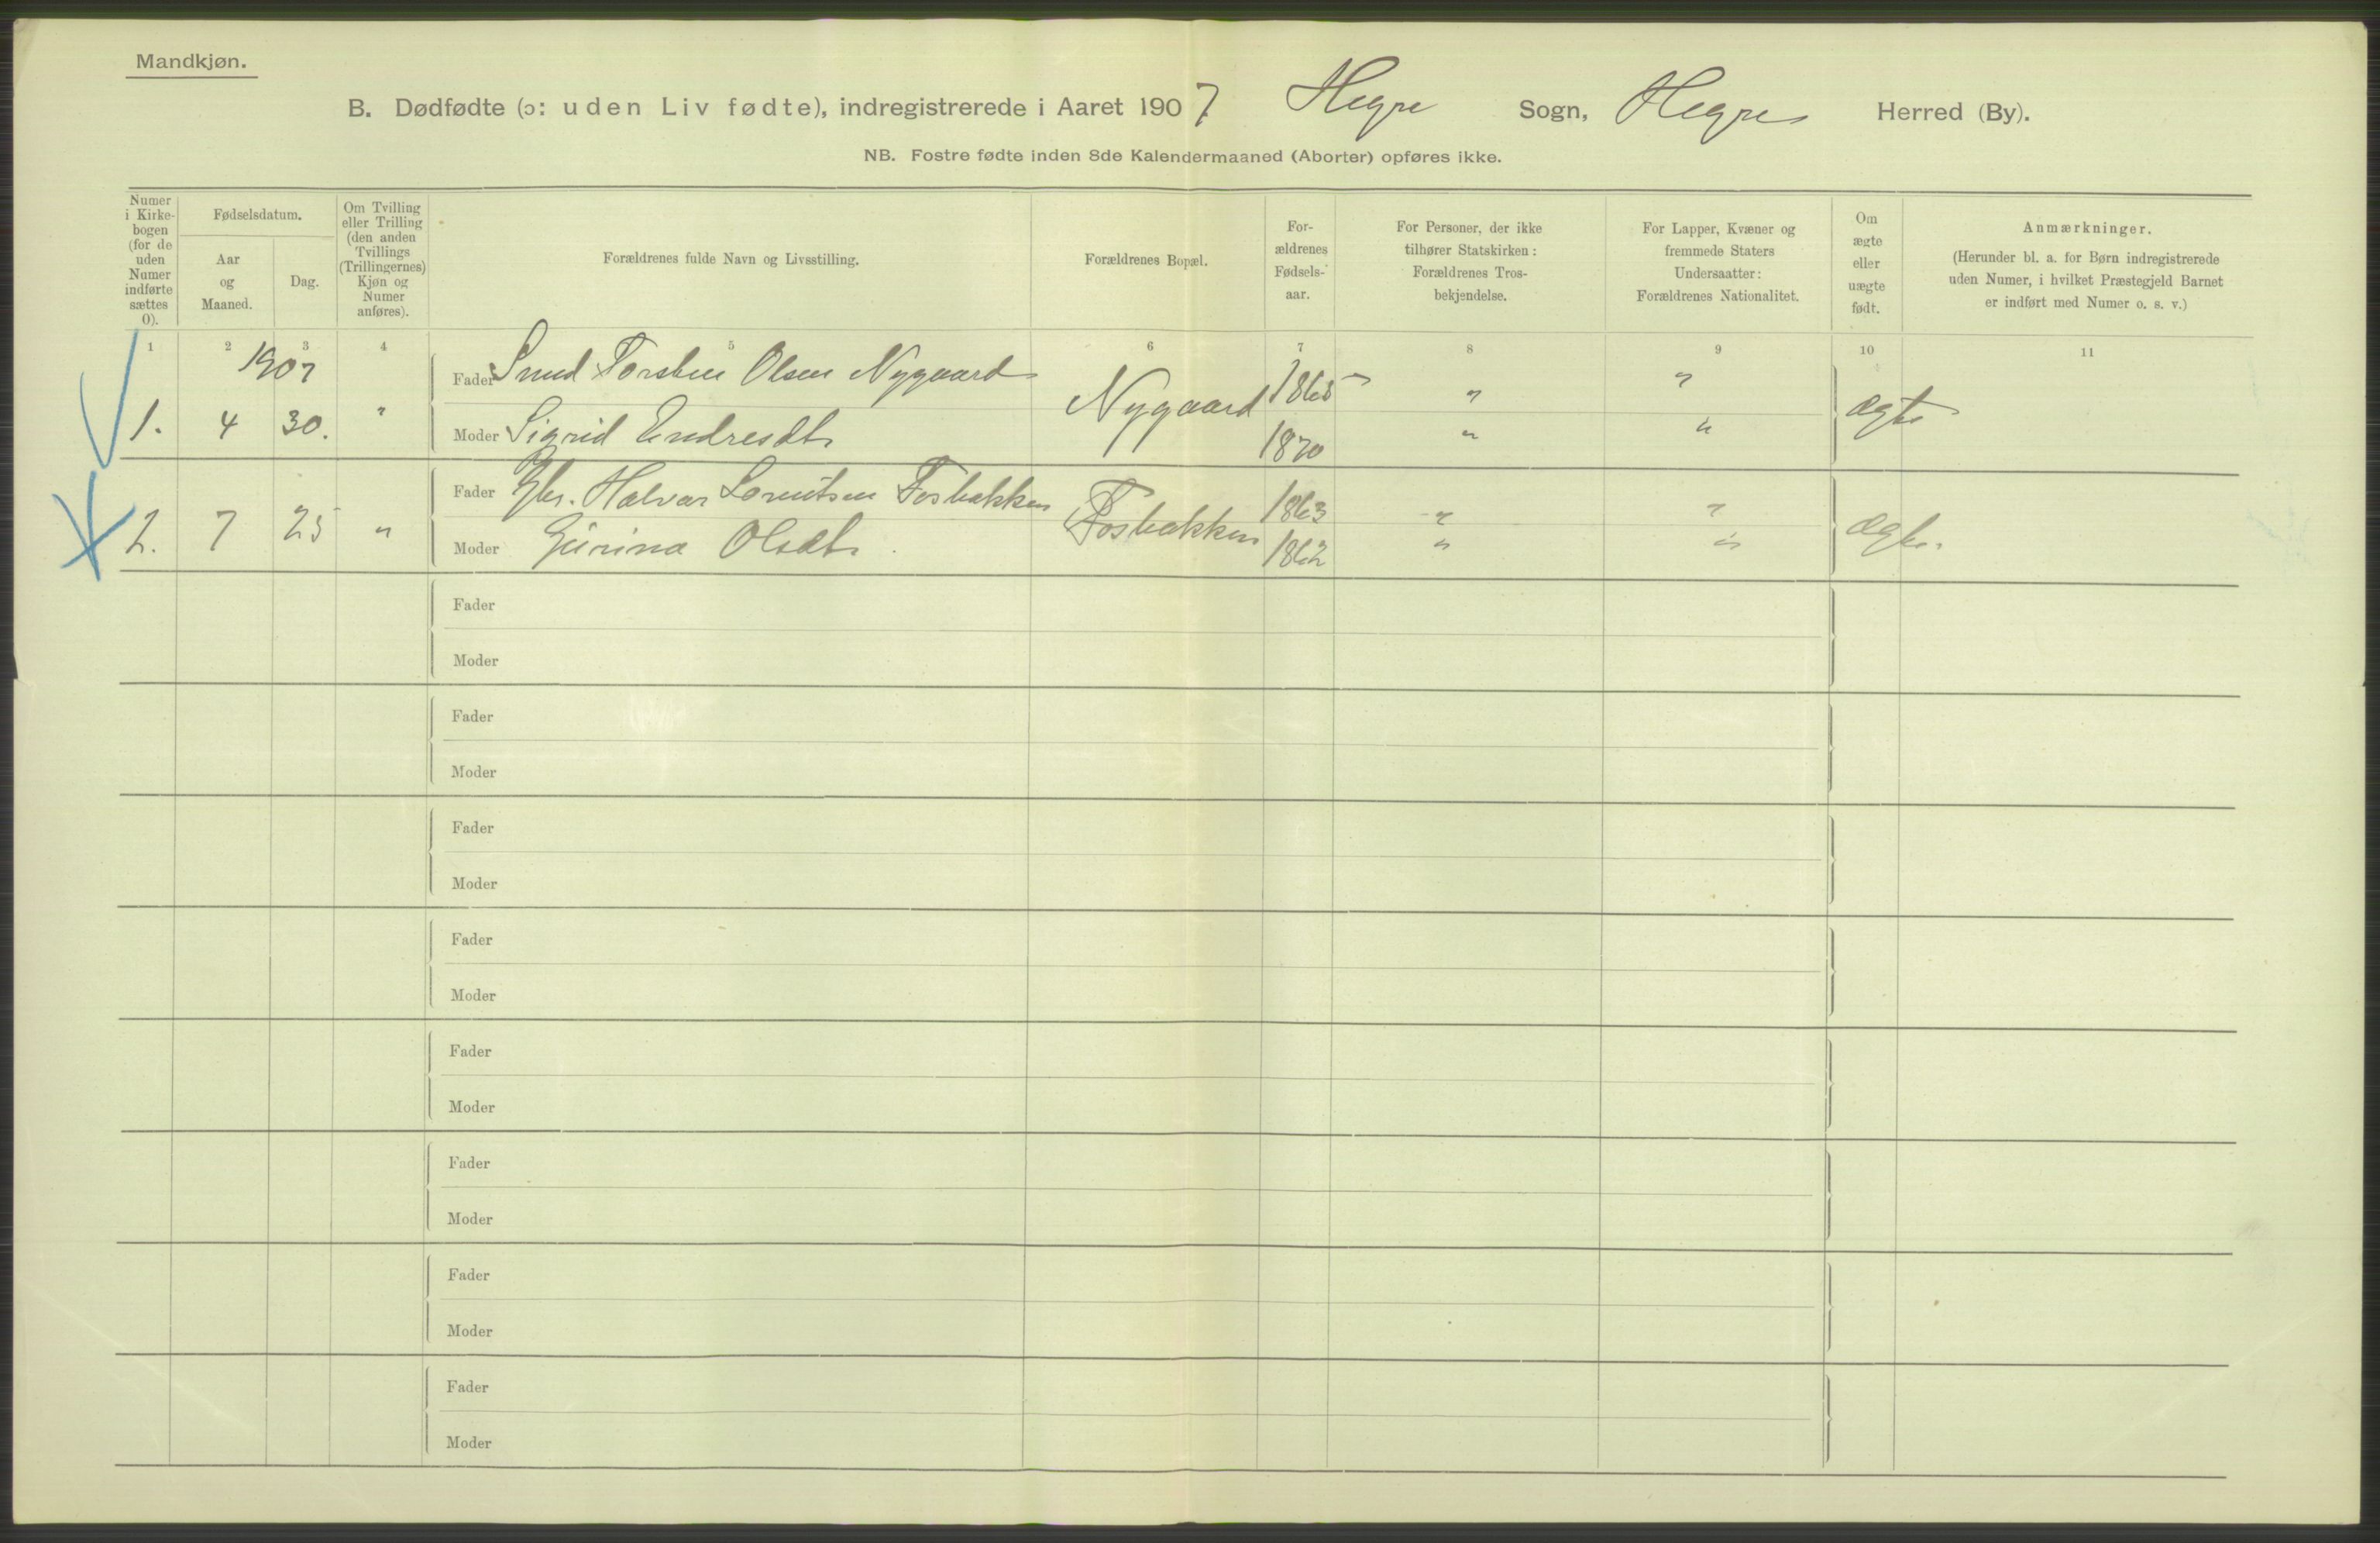 Mandkjøn.
B. Dødfødte (ɔ: uden Liv fødte), indregistrerede i Aaret 1907. Hegre Sogn, Hegre Herred (By).
NB. Fostre fødte inden 8de Kalendermaaned (Aborter) opføres ikke.
Numer i Kirke-bogen (for de uden Numer indførte sættes 0).
Fødselsdatum.
Aar og Maaned.
Dag.
Om Tvilling eller Trilling (den anden Tvillings (Trillingernes) Kjøn og Numer anføres).
Forældrenes fulde Navn og Livsstilling.
Forældrenes Bopæl.
For-ældrenes Fødsels-aar.
For Personer, der ikke tilhører Statskirken: Forældrenes Tros-bekjendelse.
For Lapper, Kvæner og fremmede Staters Undersaatter: Forældrenes Nationalitet.
Om ægte eller uægte født.
Anmærkninger.
(Herunder bl. a. for Børn indregistrerede uden Numer, i hvilket Præstegjeld Barnet er indført med Numer o. s. v.)
1 2 3 4 5 6 7 8 9 10 11
1907
Fader Smed Torsten Olsen Nygaard 1865 " "
1. 4 30. " Nygaard ægte
Moder Sigrid Endresdt. 1870 " "
Fader Gbr. Halvar Lorntsen Fosbakken 1863 " "
2. 7 25 " Fosbakken ægte.
Moder Gurina Olsdt. 1862 " "
Fader
Moder
Fader
Moder
Fader
Moder
Fader
Moder
Fader
Moder
Fader
Moder
Fader
Moder
Fader
Moder